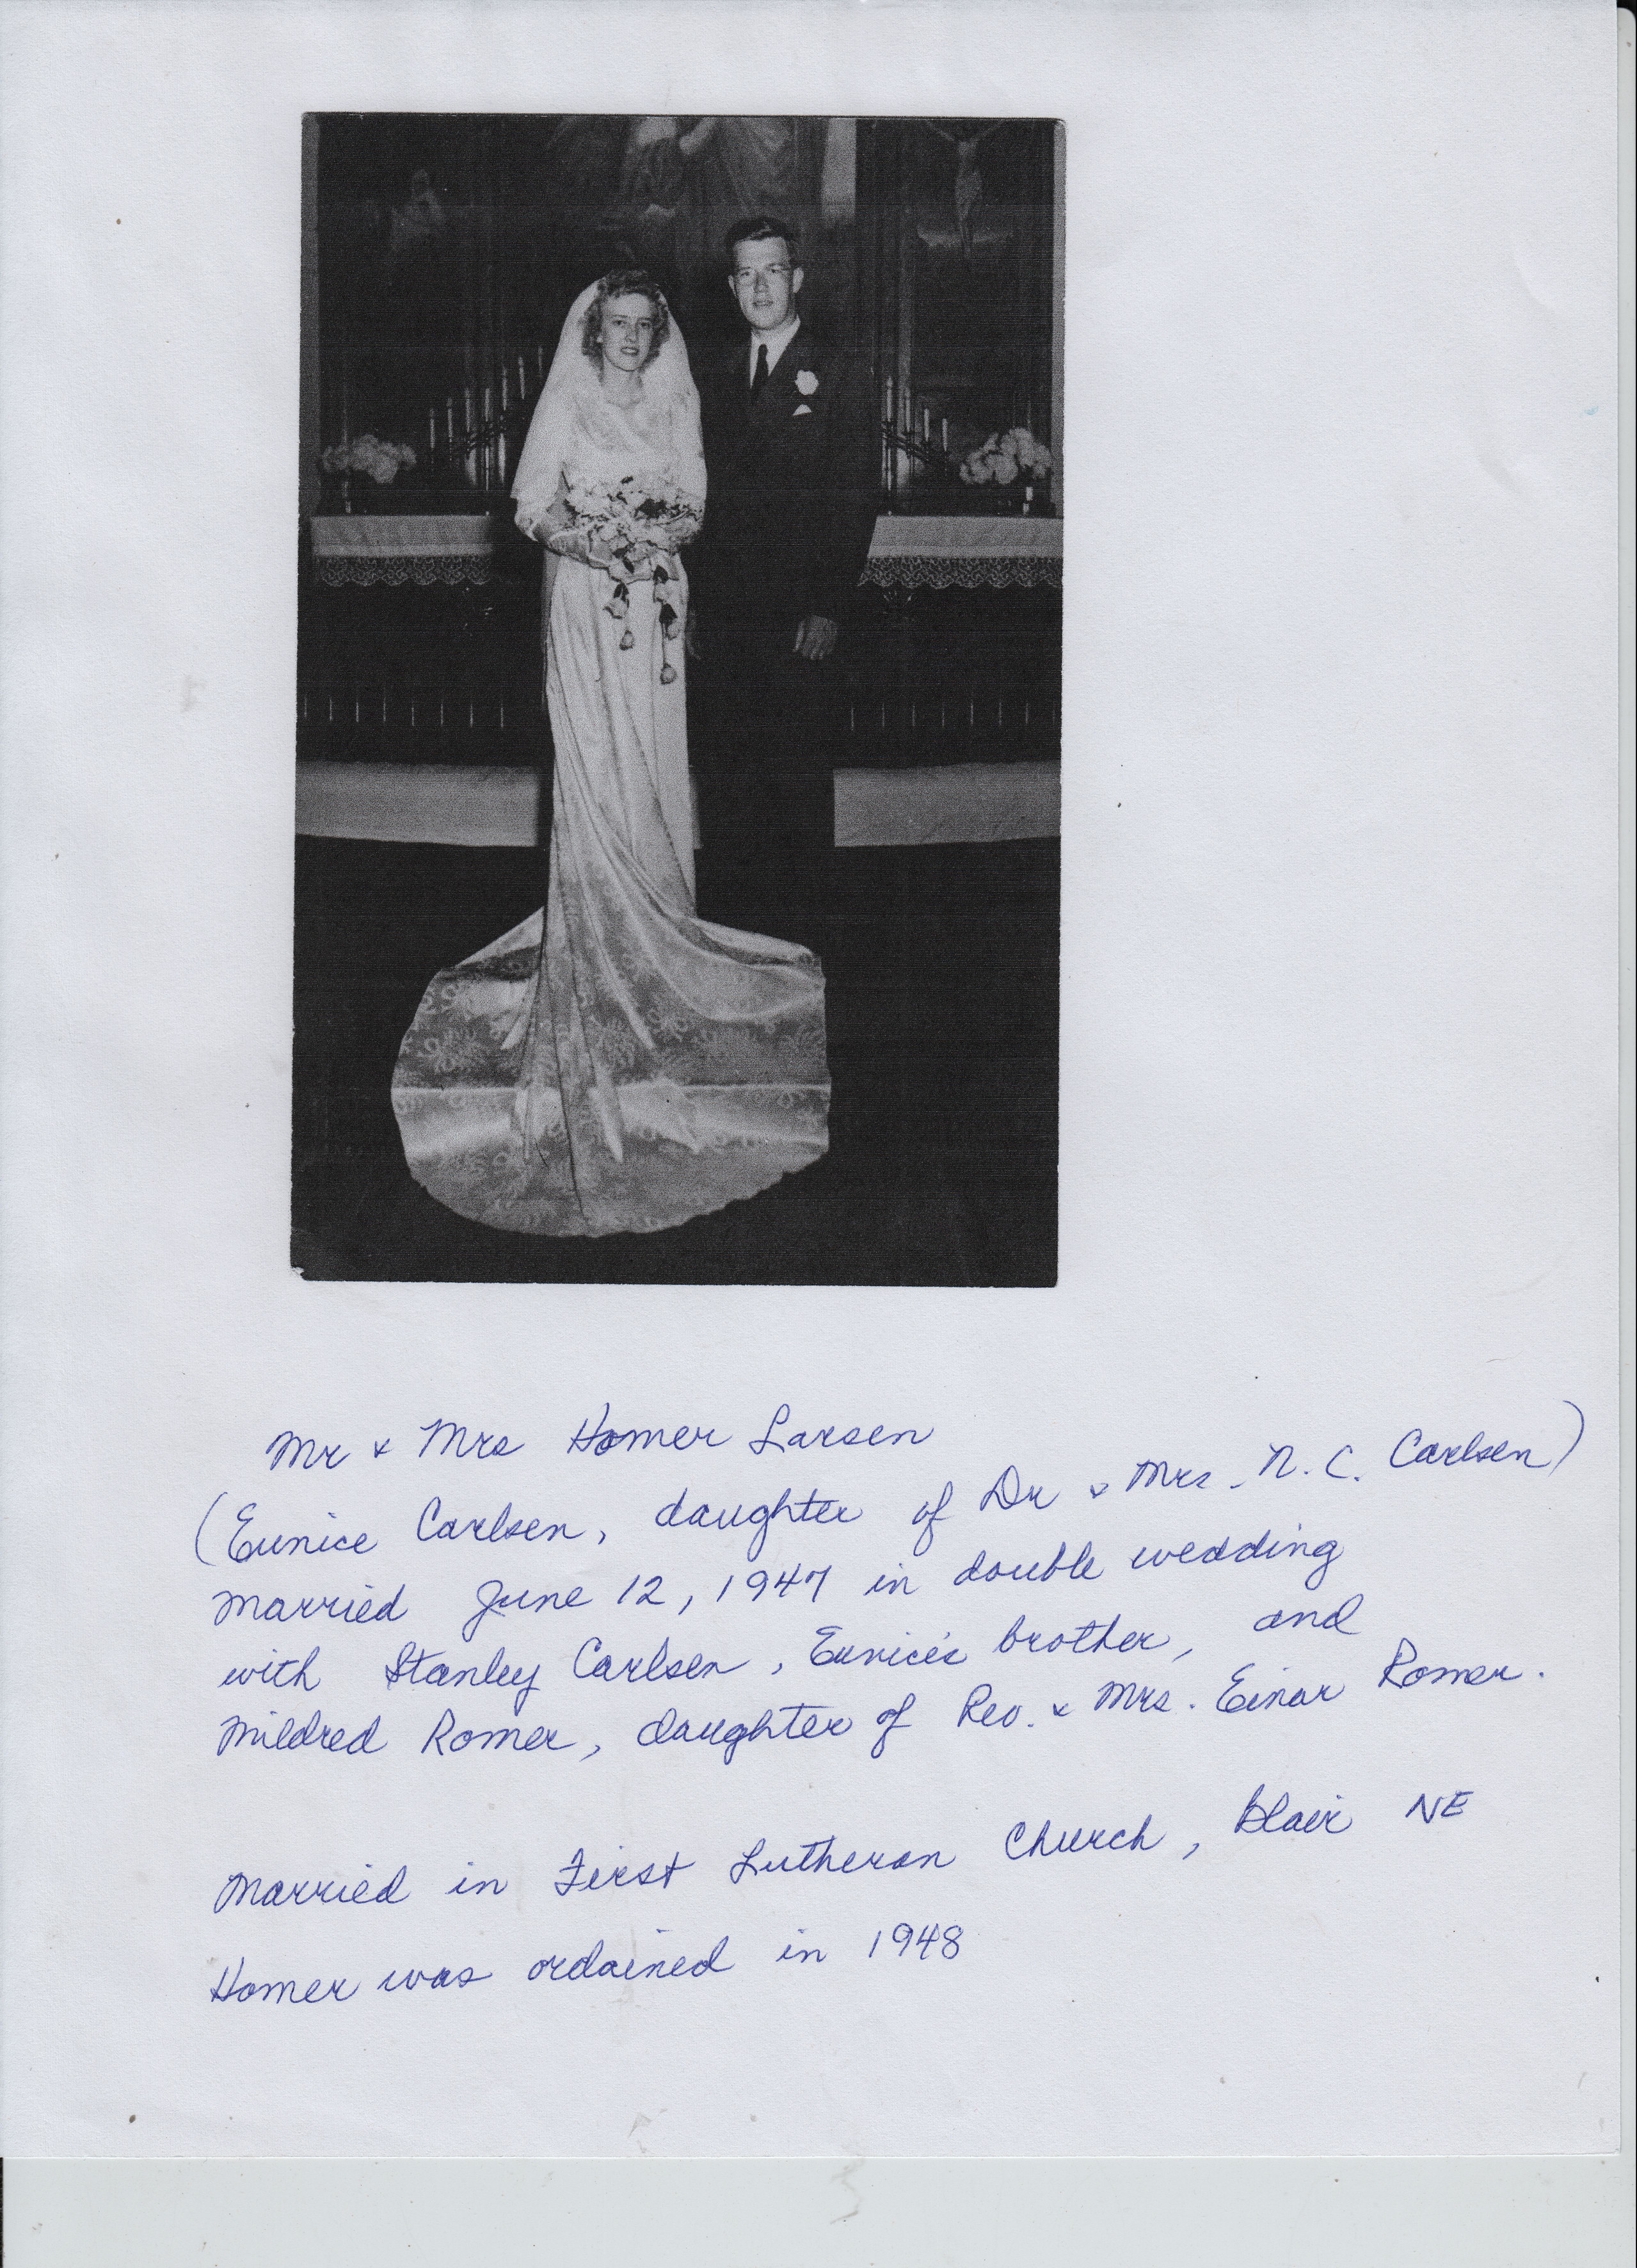 Mr & Mrs Homer Larsen
(Eunice Carlsen, daughter of Dr & Mrs. N. C. Carlsen)
Married June 12, 1947 in double wedding
with Stanley Carlsen, Eunice's brother, and
Mildred Romer, daughter of Rev. & Mrs. Einar Romer.
Married in First Lutheran Church, Blair NE
Homer was ordained in 1948